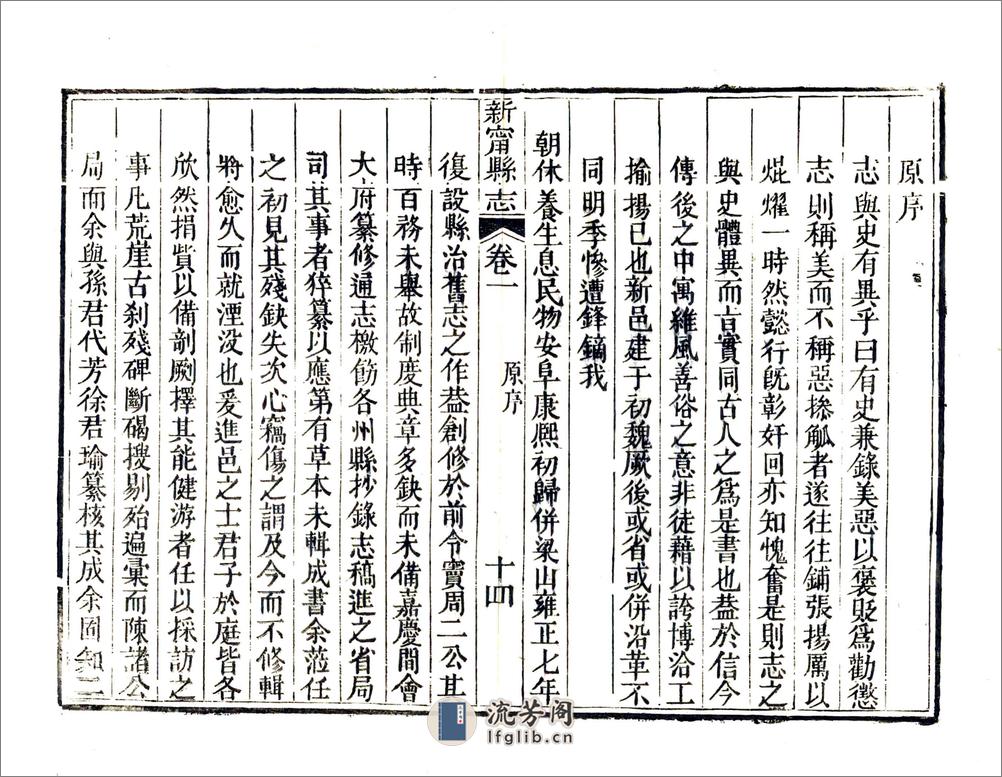 原序
志與史有異乎曰有史兼錄美惡以褒貶爲勸懲
志則稱美而不稱惡摻觚者遂往往鋪張揚厲以
焜燿一時然懿行旣彰奸回亦知愧奮是則志之
與史體異而㫖實同古人之爲是書也葢於信今
傳後之中寓維風善俗之意非徒藉以誇博洽工
揄揚已也新邑建于初魏厥後或省或併沿革不
同明季慘遭鋒鏑我
朝休養生息民物安阜康熙初歸併梁山雍正七年
新甯縣志 卷一 原序 十四
復設縣治舊志之作葢創修於前令竇周二公其
時百務未舉故制度典章多缺而未備嘉慶間會
大府纂修通志檄飭各州縣抄錄志稿進之省局
司其事者猝纂以應第有草本未輯成書余蒞任
之初見其殘缺失次心竊傷之謂及今而不修輯
將愈久而就湮没也爰進邑之士君子於庭皆各
欣然捐貲以備剞劂擇其能健游者任以採訪之
事凡荒崖古刹殘碑斷碣搜剔殆遍彙而陳諸公
局而余與孫君代芳徐君瑜纂核其成余固知二
流芳阁
lfglib.cn